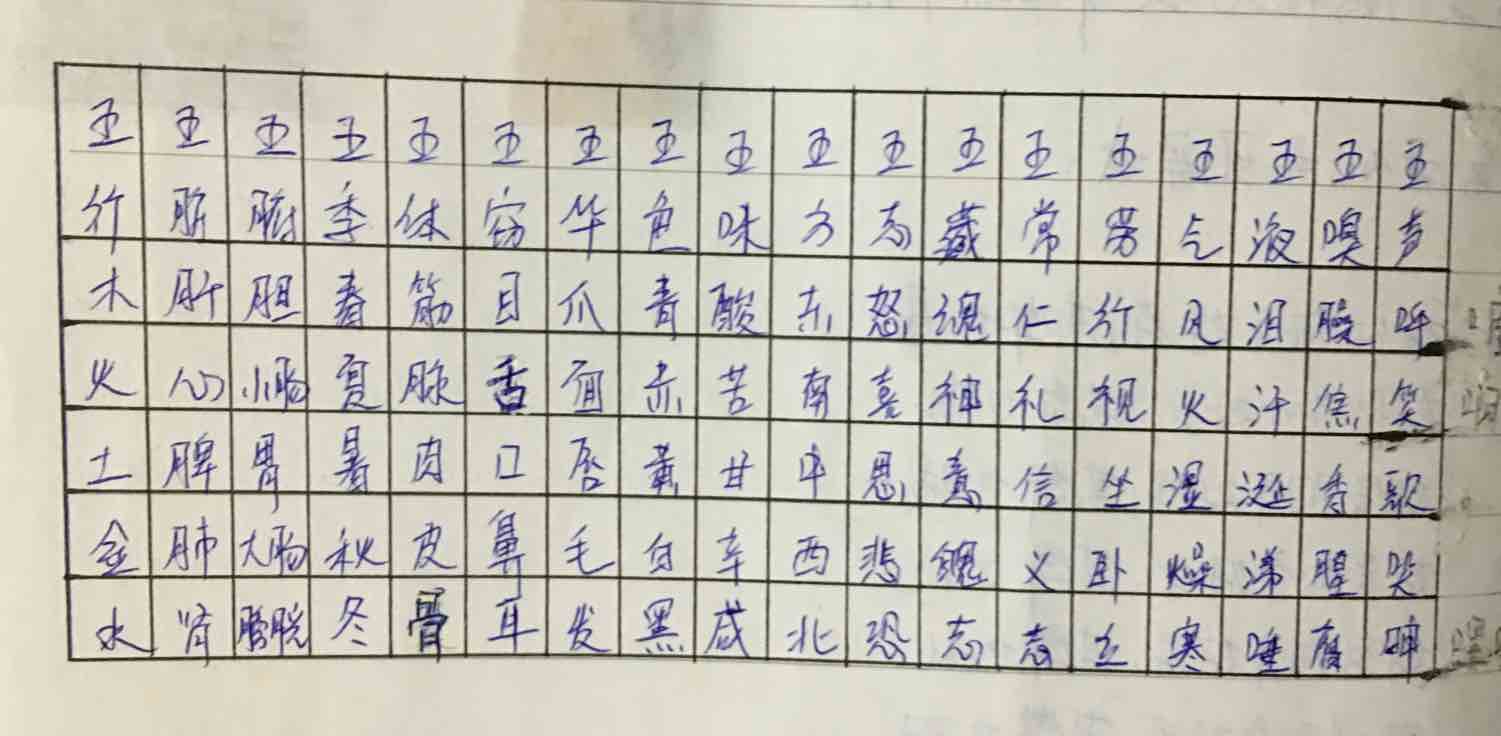 五 五 五 五 五 五 五 五 五 五 五 五 五 五 五 五 五 五
行 脏 腑 季 体 窍 华 色 味 方 志 藏 常 劳 气 液 嗅 声
木 肝 胆 春 筋 目 爪 青 酸 东 怒 魂 仁 行 风 泪 臊 呼
火 心 小肠 夏 脉 舌 面 赤 苦 南 喜 神 礼 视 火 汗 焦 笑
土 脾 胃 暑 肉 口 唇 黄 甘 中 思 意 信 坐 湿 涎 香 歌
金 肺 大肠 秋 皮 鼻 毛 白 辛 西 悲 魄 义 卧 燥 涕 腥 哭
水 肾 膀胱 冬 骨 耳 发 黑 咸 北 恐 志 志 立 寒 唾 腐 呻